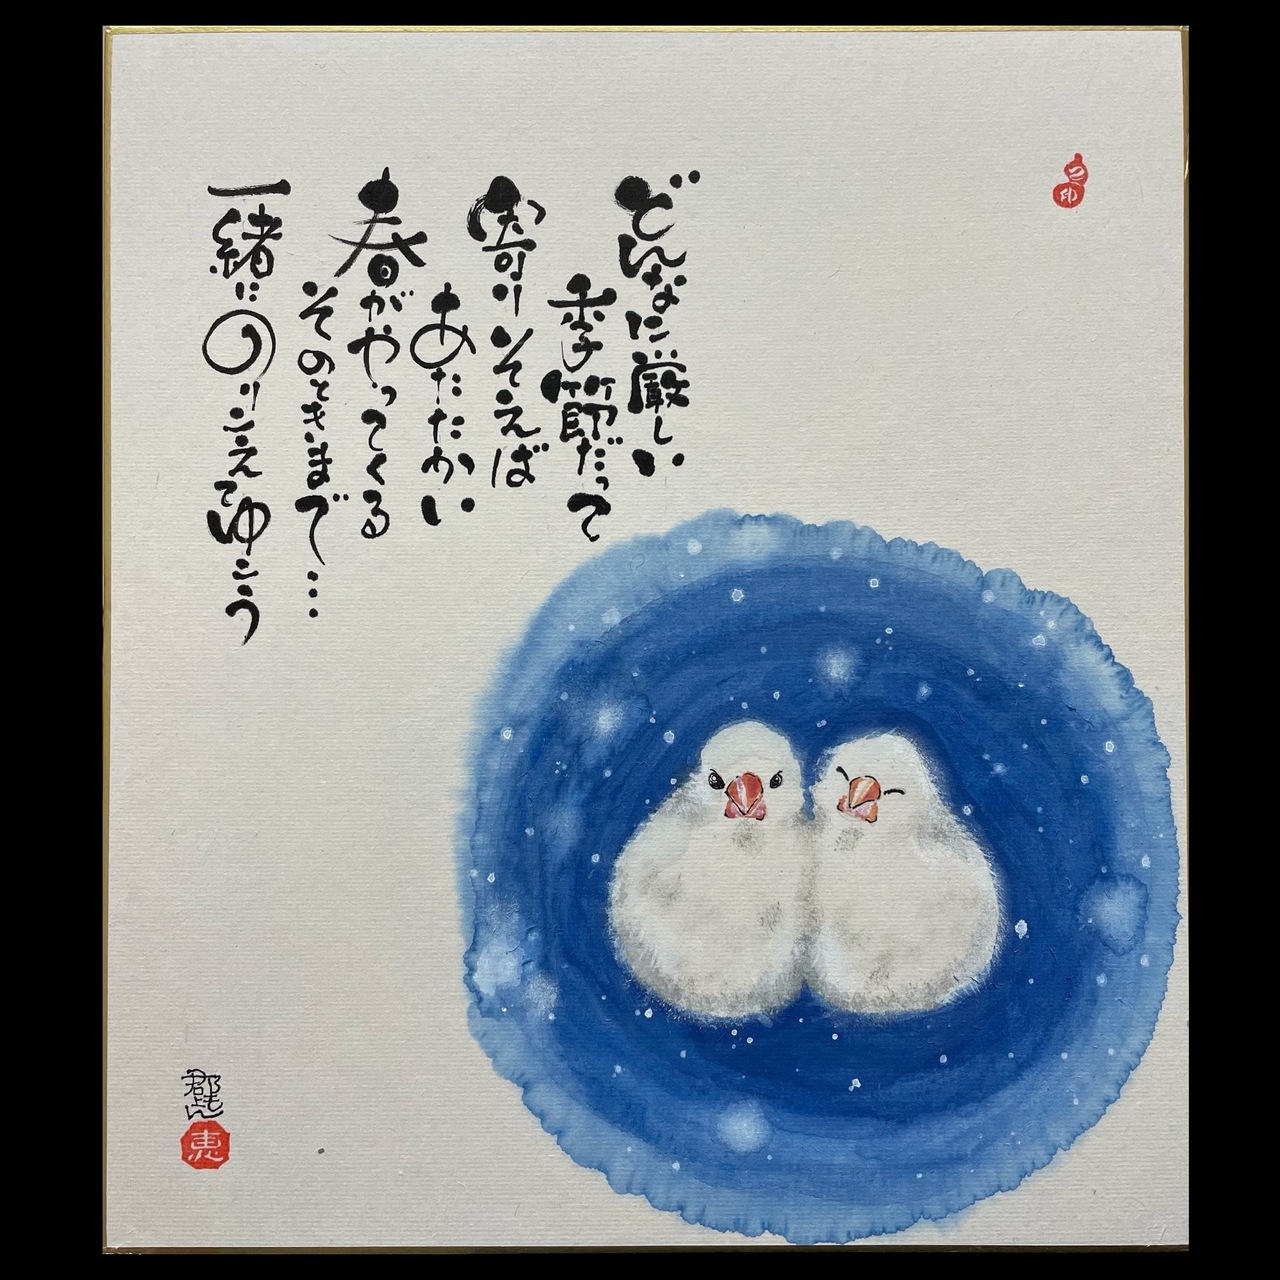 どんなに厳しい
季節だって
寄りそえば
あたたかい
春がやってくる
そのときまで…
一緒にのりこえてゆこう
恵